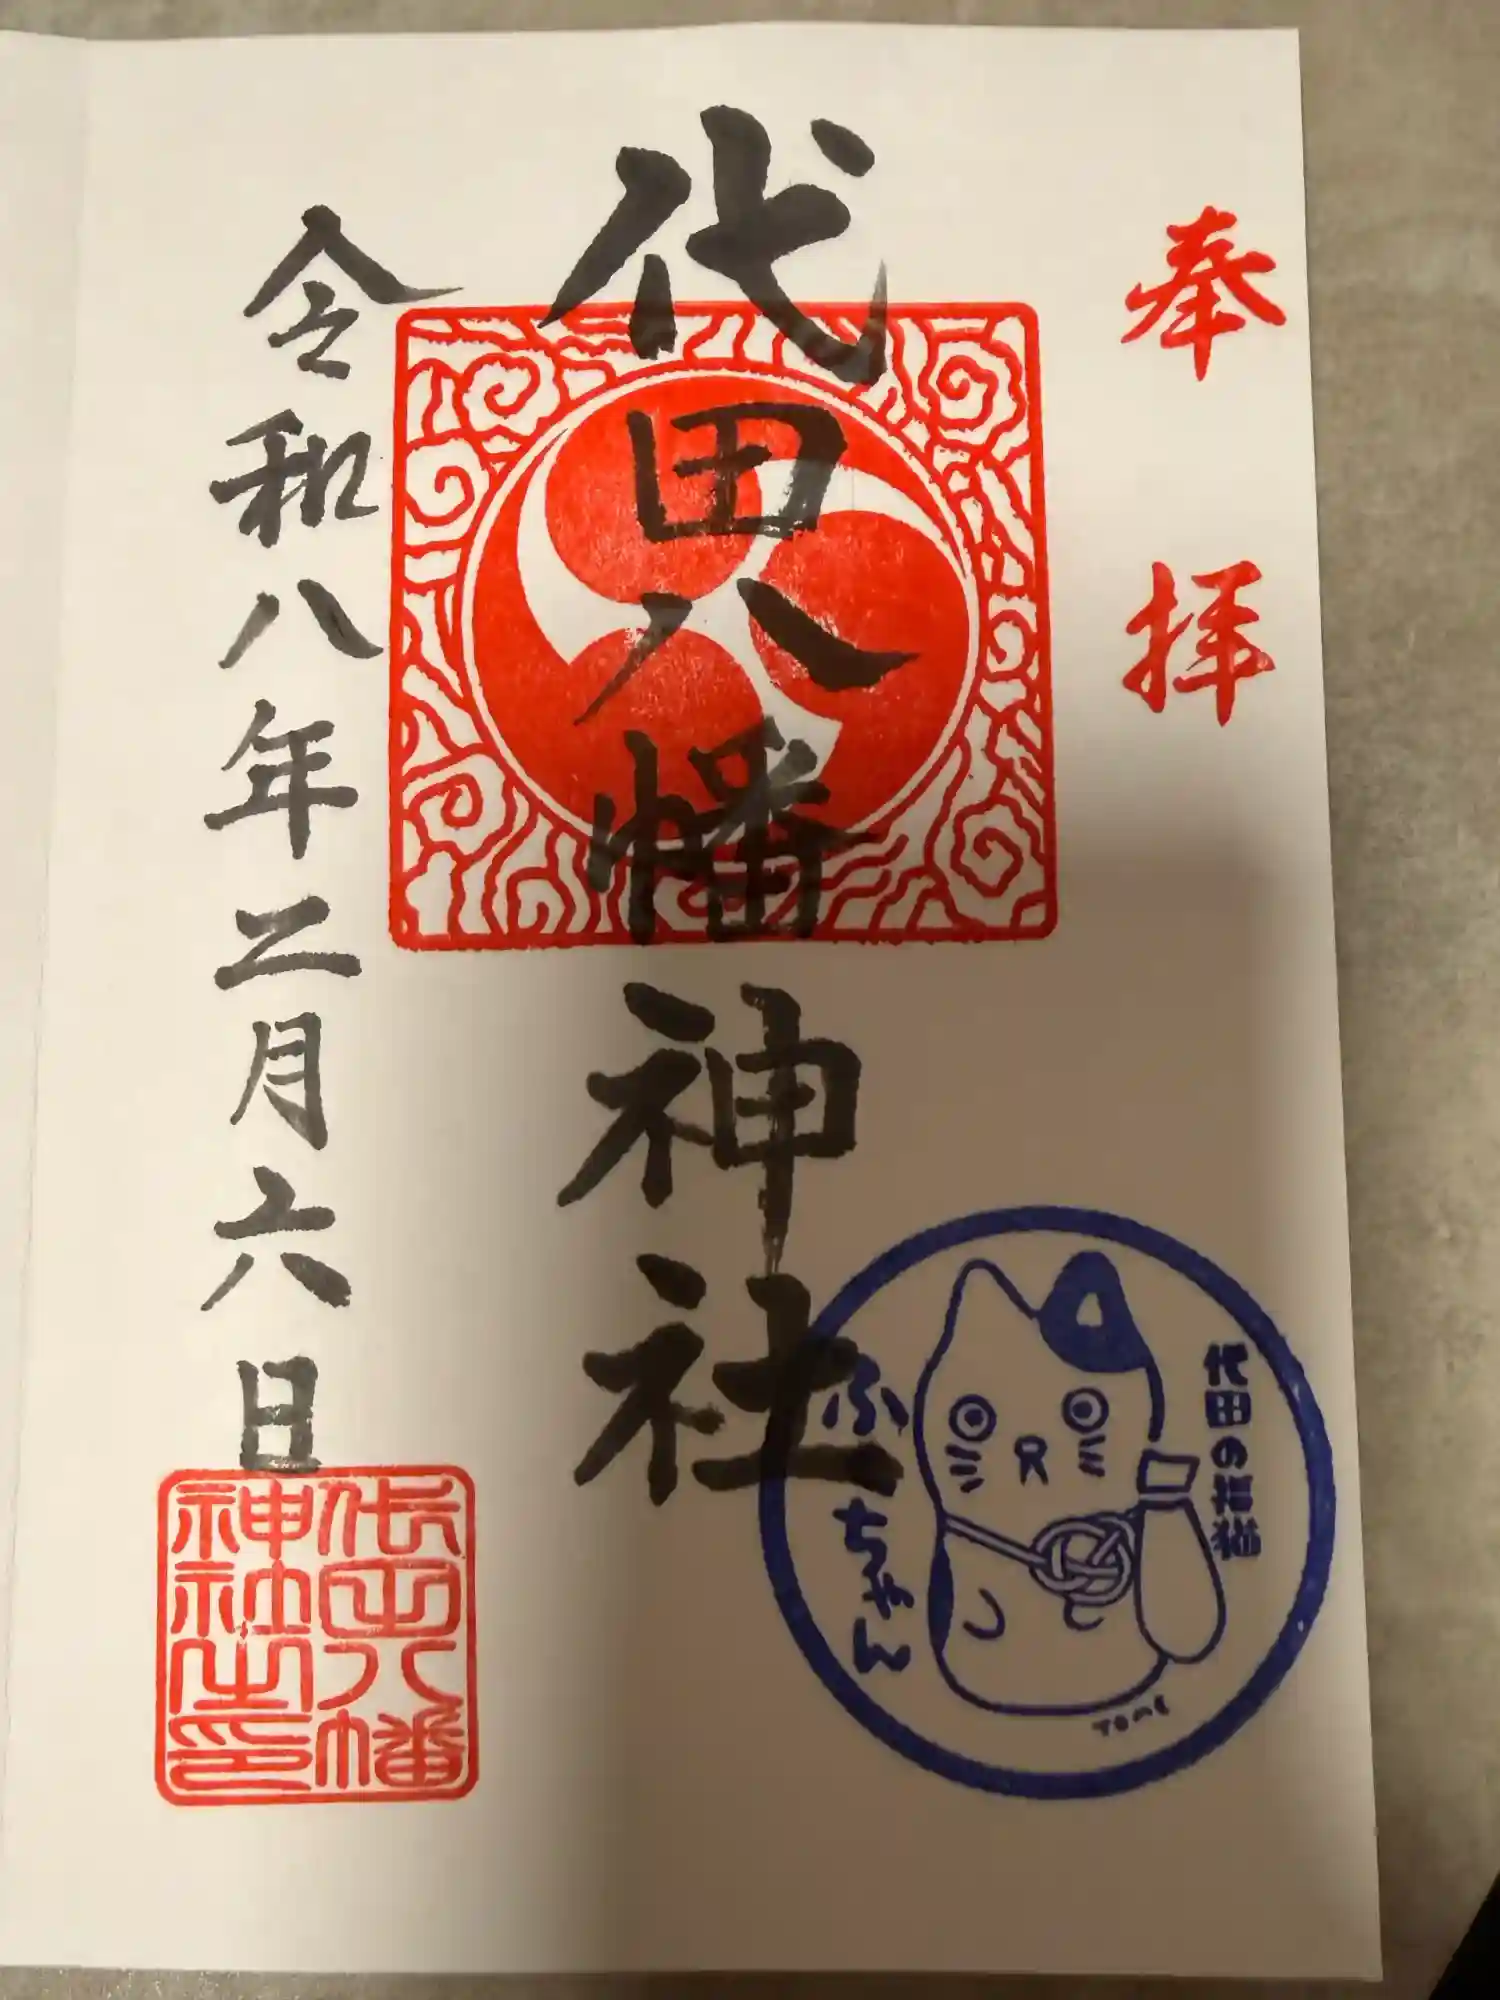 奉拝
代田八幡神社
令和八年二月六日
代田八幡
神社之印
代田の招猫
ふーちゃん
TOMC